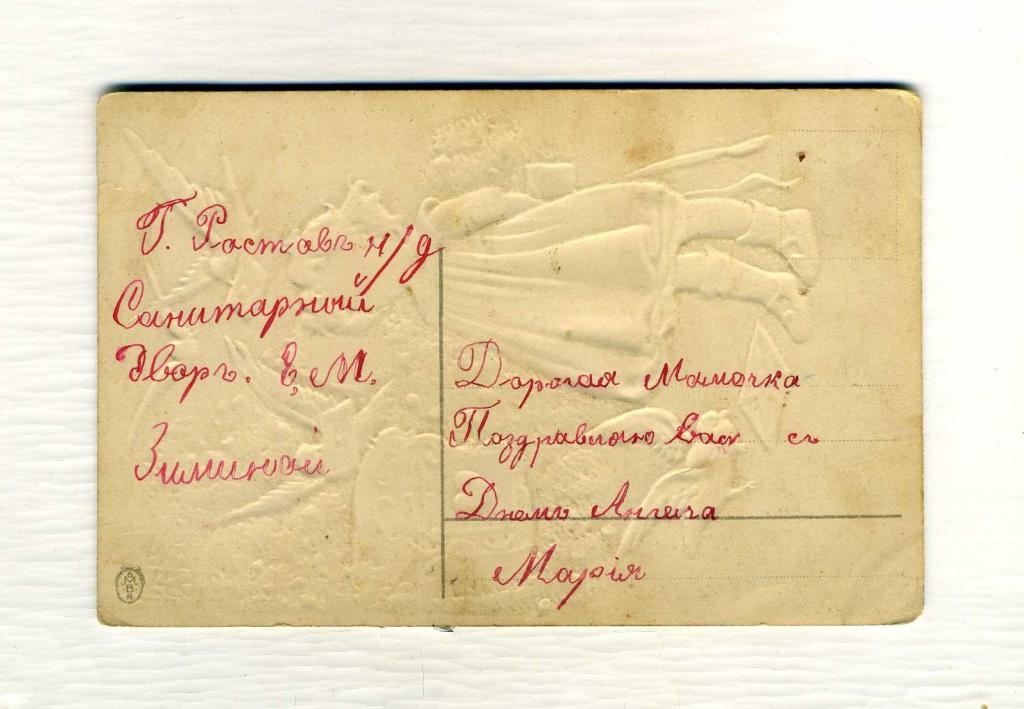 Г. Ростовъ н/д
Санитарный
Дворъ. Е, М.
Зиминой
Дорогая Мамочка
Поздравляю Вас съ
Днемъ Ангела
Марія